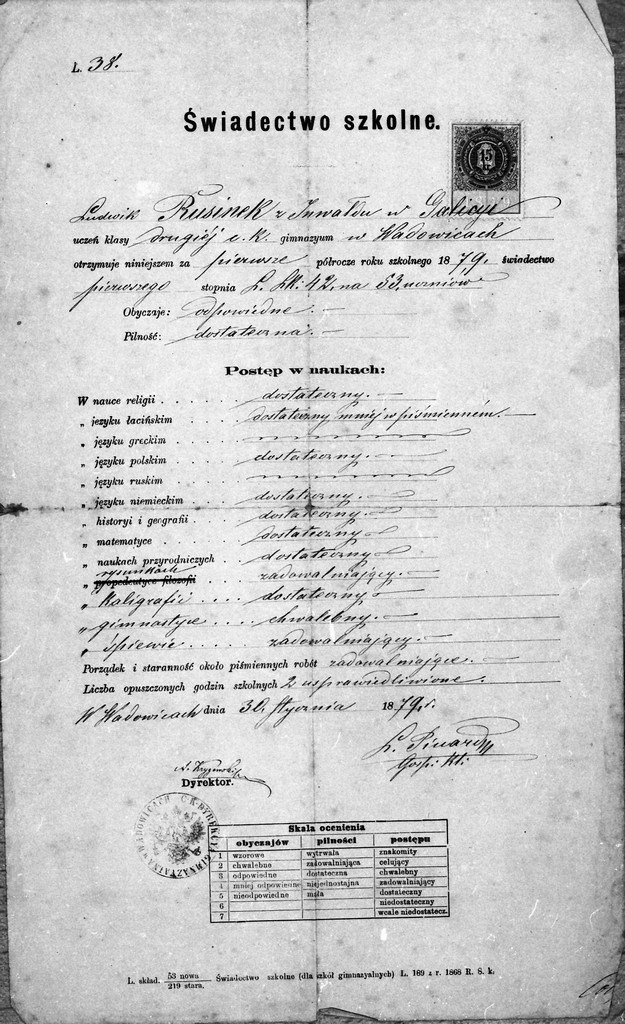 L. 38.
Świadectwo szkolne.
15
Ludwik Rusinek z Inwałdu w Galicyi
uczeń klasy drugiéj c. k. gimnazyum w Wadowicach
otrzymuje niniejszem za pierwsze półrocze roku szkolnego 1879. świadectwo
pierwszego stopnia L. Lk: 42, na 53, uczniów.
Obyczaje: odpowiedne.
Pilność: dostateczna.
Postęp w naukach:
W nauce religii . . . . . . dostateczny.
„ języku łacińskim . . . . dostateczny, mniej w piśmienném.
„ języku greckim . . . .
„ języku polskim . . . . dostateczny.
„ języku ruskim . . . .
„ języku niemieckim . . . . dostateczny.
„ historyi i geografii . . . . dostateczny.
„ matematyce . . . . dostateczny
„ naukach przyrodniczych . . dostateczny
rysunkach
„ propedeutyce filozofii . . . . zadowalniający.
„ Kaligrafii . . . . dostateczny
„ gimnastyce . . . . chwalebny.
„ śpiewie . . . . zadowalniający.
Porządek i staranność około piśmiennych robót zadowalniające.
Liczba opuszczonych godzin szkolnych 2 usprawiedliwione.
W Wadowicach dnia 30. stycznia 1879. r.
Gosp: kl:
Dyrektor.
C. K. DYREKCJA GIMNAZYALNA W WADOWICACH
Skala ocenienia
obyczajów pilności postępu
1 wzorowe wytrwała znakomity
2 chwalebne zadowalniająca celujący
3 odpowiedne dostateczna chwalebny
4 mniej odpowiedne niejednostajna zadowalniający
5 nieodpowiedne mała dostateczny
6 niedostateczny
7 wcale niedostatecz.
L. skład. 53 nowa / 219 stara. Świadectwo szkolne (dla szkół gimnazyalnych) L. 189 z r. 1868 R. S. k.